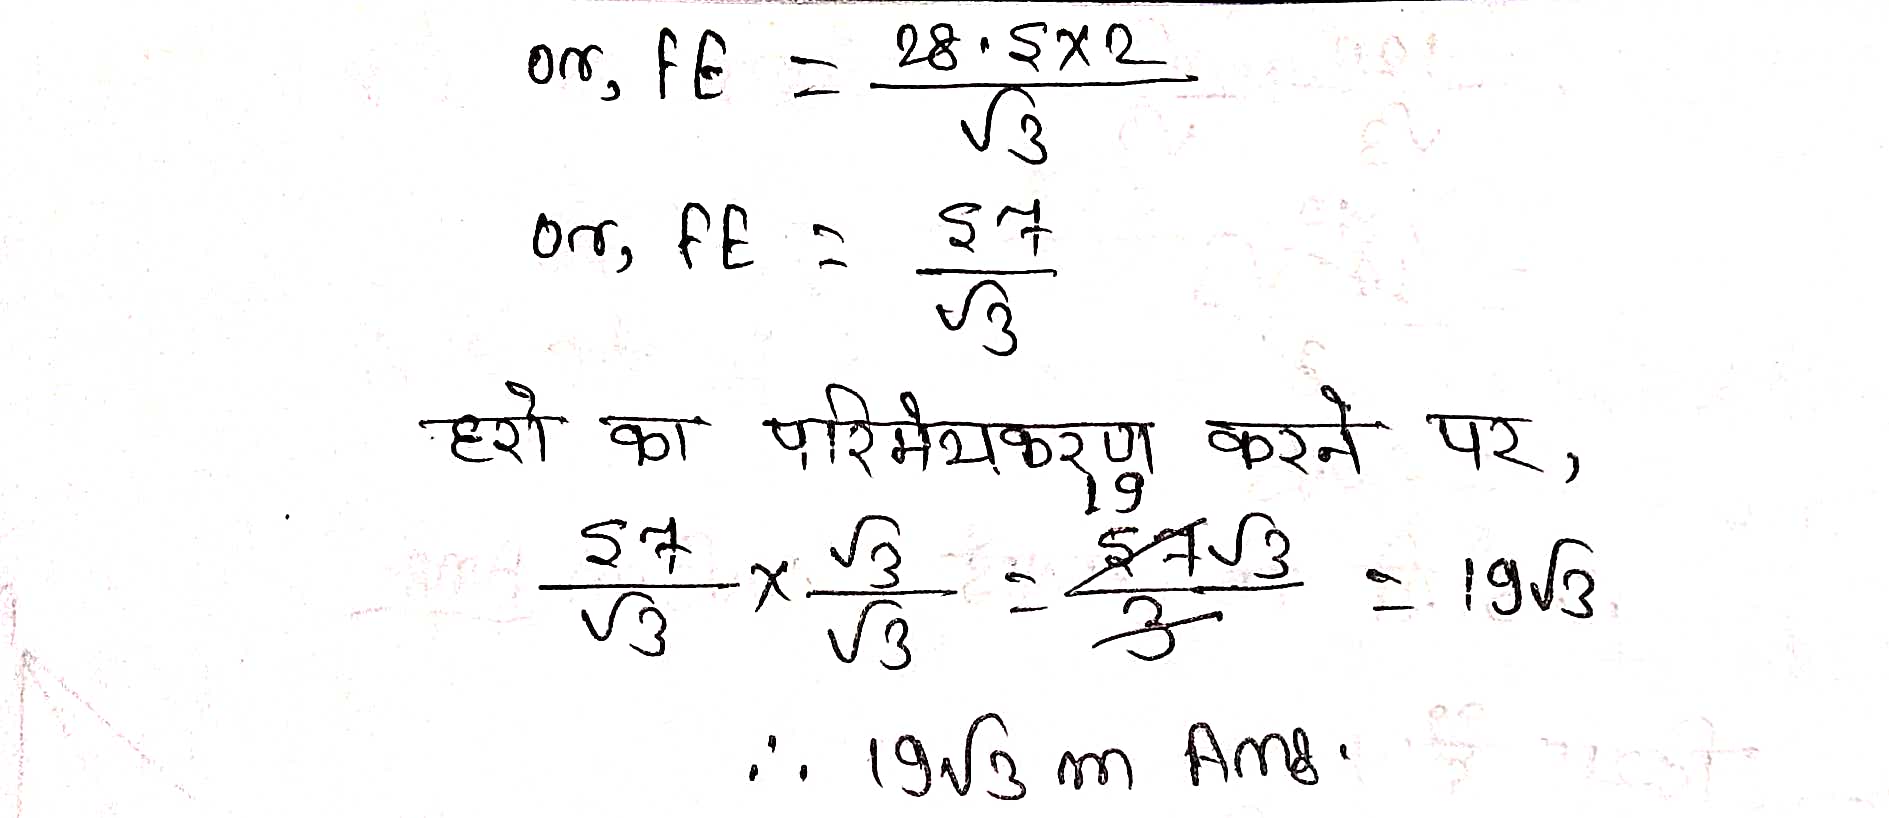 or, FE = 28.5×2/√3
or, FE = 57/√3
हरो का परिमेयकरण करने पर,
57/√3 × √3/√3 = 19 57√3/3 = 19√3
∴ 19√3 m Ans.